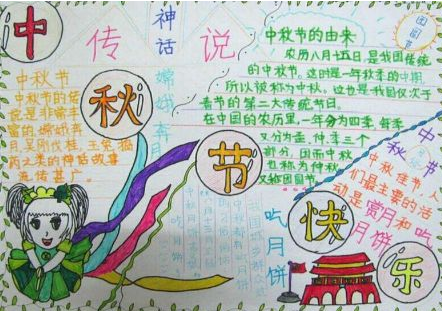 中
秋
节
快
乐
传
神话
说
团圆节
中秋节的由来
农历八月十五日是我国传统
的中秋节。这时是一年秋季的中期,
所以被称为中秋。这也是我国仅次于
春节的第二大传统节日。
在中国的农历里,一年分为四季,每季
又分为孟、仲、季三个
部分,因而中秋
也称为仲秋
又给团圆节
中秋节
中秋节的传
说是非常丰
富的,嫦娥奔
月,吴刚伐桂,玉兔捣
药之类的神话故事
流传甚广。
嫦娥奔月
吃月饼
中秋
中秋佳节,人
们最主要的活
动是赏月和吃
月饼
吃月饼